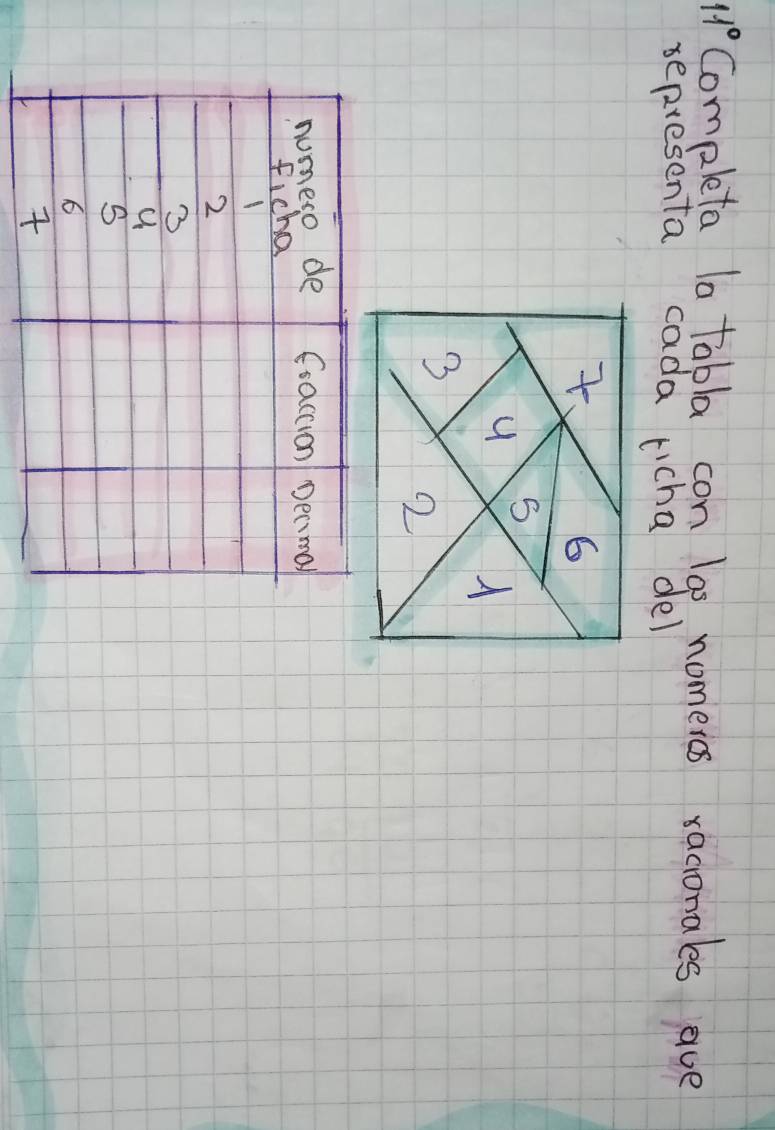 11° Completa la Tabla con los numeros racionales que
representa cada ficha del
7
6
3
4
5
2
1
numero de ficha fraccion Decimal
1
2
3
4
5
6
7